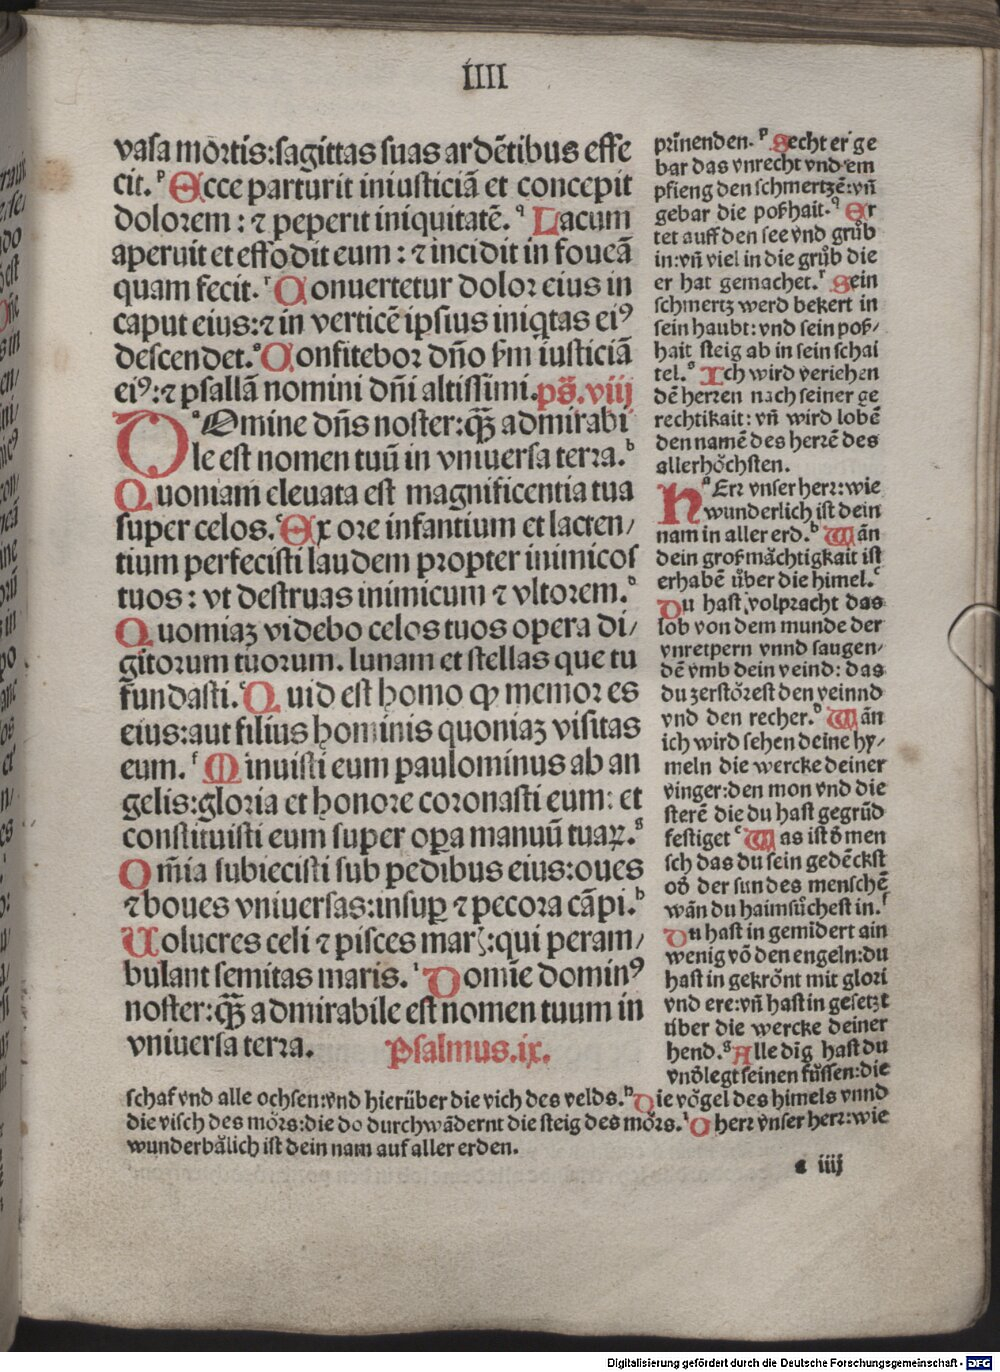 IIII
vasa mortis:sagittas suas ardētibus effe
cit. ᵖ Ecce parturit iniusticiā et concepit
dolorem : ⁊ peperit iniquitatē. ᑫ Lacum
aperuit et effodit eum : ⁊ incidit in foueā
quam fecit. ʳ Conuertetur dolor eius in
caput eius:⁊ in verticē ipsius iniqtas eiꝰ
descendet. ˢ Confitebor dño ẜm iusticiā
eiꝰ:⁊ psallā nomini dñi altissimi. ps̄.viij
ᵃ Domine dñs noster:qꝫ admirabi
le est nomen tuū in vniuersa terra. ᵇ
Quoniam eleuata est magnificentia tua
super celos. ᶜ Ex ore infantium et lacten/
tium perfecisti laudem propter inimicos
tuos : vt destruas inimicum ⁊ vltorem. ᵈ
Quoniaꝫ videbo celos tuos opera di/
gitorum tuorum. lunam et stellas que tu
fundasti. ᵉ Quid est homo ꝙ memor es
eius:aut filius hominis quoniaꝫ visitas
eum. ᶠ Minuisti eum paulominus ab an
gelis:gloria et honore coronasti eum: et
constituisti eum super opa manuū tuaꝝ. ᵍ
Om̄ia subiecisti sub pedibus eius:oues
⁊ boues vniuersas:insuꝑ ⁊ pecora cāpi. ʰ
Uolucres celi ⁊ pisces mar̄:qui peram/
bulant semitas maris. ⁱ Domīe dominꝰ
noster:qꝫ admirabile est nomen tuum in
vniuersa terra. Psalmus.ix.
prīnenden. ᵖ Secht er ge
bar das vnrecht vnd em
pfieng den schmertzē:vñ
gebar die poßhait. ᑫ Er
tet auff den see vnd grůb
in:vñ viel in die grůb die
er hat gemachet. ʳ Sein
schmertz werd bekert in
sein haubt:vnd sein poß/
hait steig ab in sein schai
tel. ˢ Ich wird veriehen
dē herren nach seiner ge
rechtikait: vñ wird lobē
den namē des herrē des
allerhöchsten.
ᵃ HErr vnser herr:wie
wunderlich ist dein
nam in aller erd. ᵇ Wān
dein großmächtigkait ist
erhabē über die himel. ᶜ
Du hast volpracht das
lob von dem munde der
vnretpern vnnd saugen/
dē vmb dein veind: das
du zerstörest den veinnd
vnd den recher. ᵈ Wān
ich wird sehen deine hy/
meln die wercke deiner
vinger:den mon vnd die
sterē die du hast gegrūd
festiget ᵉ Was ist ð men
sch das du sein gedēckst
oð der sun des menschē
wān du haimsůchest in. ᶠ
Du hast in gemidert ain
wenig vō den engeln:du
hast in gekrönt mit glori
vnd ere:vñ hast in gesetzt
über die wercke deiner
hend. ᵍ Alle dīg hast du
vnðlegt seinen füssen:die
schaf vnd alle ochsen:vnd hierüber die vich des velds. ʰ Die vögel des himels vnnd
die visch des mörs:die do durchwādernt die steig des mörs. ⁱ O herr vnser herr:wie
wunderbälich ist dein nam auf aller erden.
a iiij
Digitalisierung gefördert durch die Deutsche Forschungsgemeinschaft - DFG